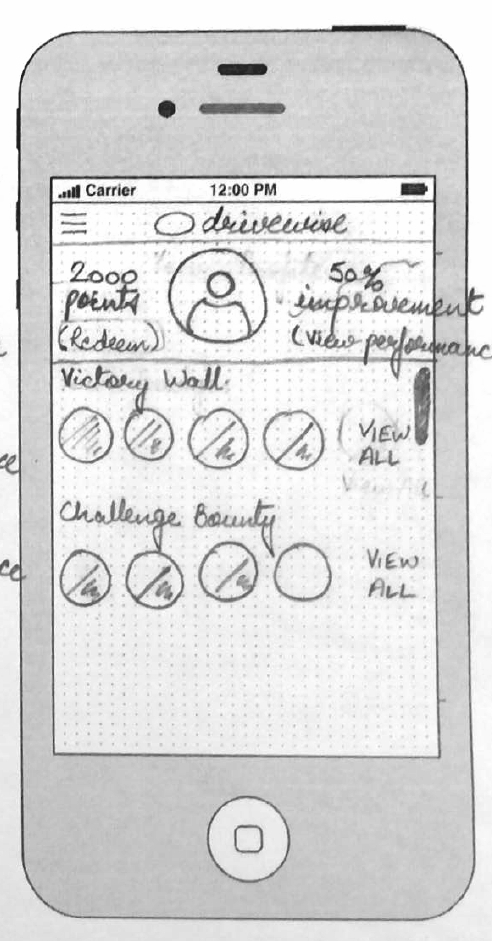 Carrier 12:00 PM
drivewise
2000
points
(Redeem)
50%
improvement
(View performanc
Victory Wall
VIEW
ALL
Challenge Bounty
VIEW
ALL